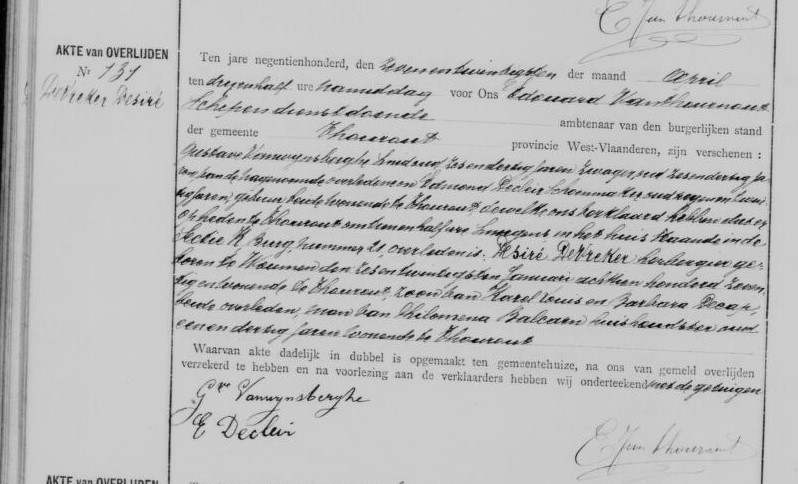 E Van Thourout
AKTE van OVERLIJDEN
Nr 131
Debreker Desiré
Ten jare negentienhonderd, den zevenentwintigsten der maand April
ten dryenhalf ure namiddag voor Ons Edouard Vanthournout
Schepen dienstdoende ambtenaar van den burgerlijken stand
der gemeente Thourout provincie West-Vlaanderen, zijn verschenen :
Gustave Vanwynsberghe Landbouwer oud zesendertig jaren, zwager, oud zesendertig ja-
ren, van de nagenoemde overledene en Edmond Decleir Schoenmaker oud negenentwin-
tig jaren, gebuur, beide wonende te Thourout, dewelke ons verklaard hebben dat er
op heden te Thourout omtrent half ure 's morgens in het huis staande in de
Sectie K, Burg, nummer 21, overleden is: Desiré Debreker herbergier ge-
boren te Woumen den zesentwintigsten Januari achttien honderd zeven-
tig en wonende te Thourout, zoon van Karel Louis en Barbara Decap,
beide overleden, man van Philomena Balcaen huishoudster oud
eenendertig jaren wonende te Thourout
Waarvan akte dadelijk in dubbel is opgemaakt ten gemeentehuize, na ons van gemeld overlijden
verzekerd te hebben en na voorlezing aan de verklaarders hebben wij onderteekend met de getuigen
Gve Vanwynsberghe
E Decleir
E Van Thourout
AKTE van OVERLIJDEN